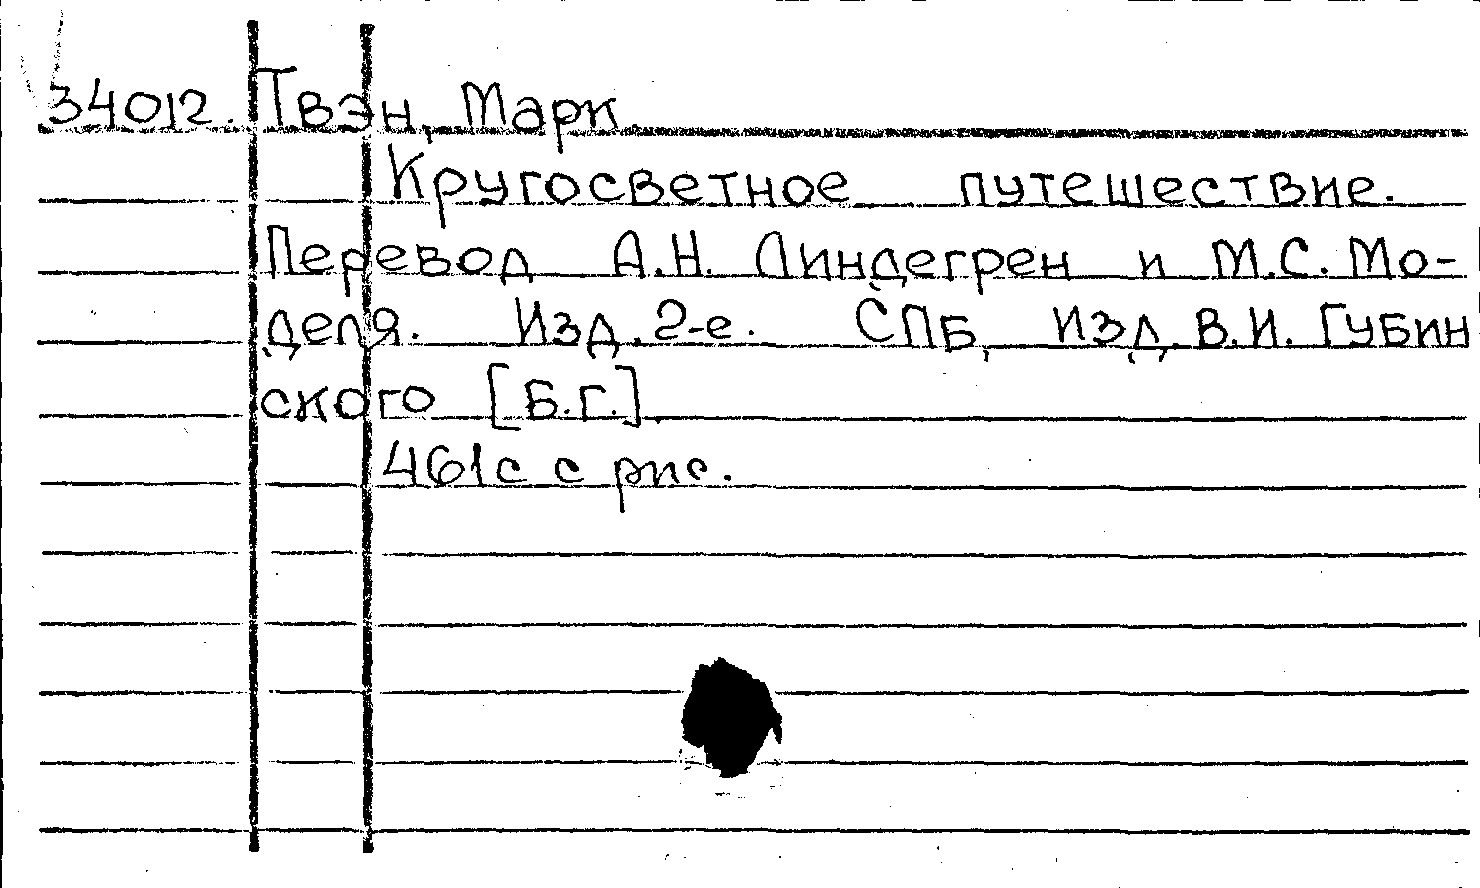 34012. Твэн, Марк.
Кругосветное путешествие.
Перевод А.Н. Линдегрен и М.С. Мо-
деля. Изд. 2-е. СПБ, Изд. В.И. Губин
ского [Б.г.].
461с с рис.